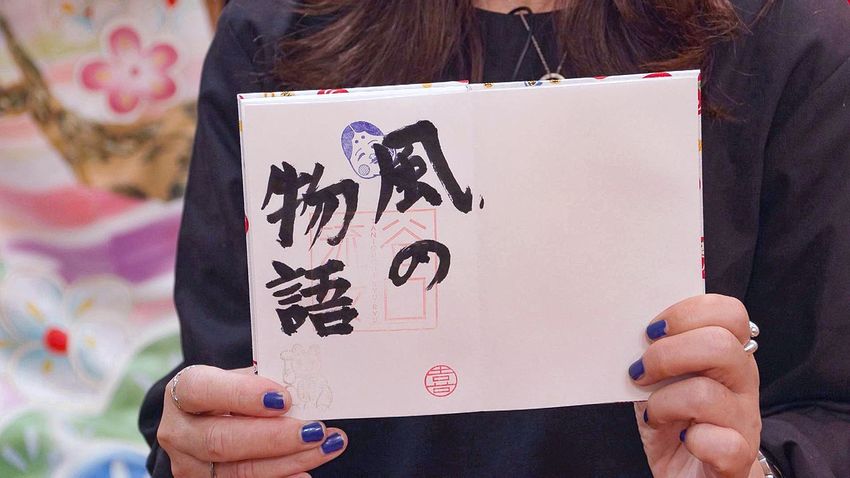 風の
物語
喜